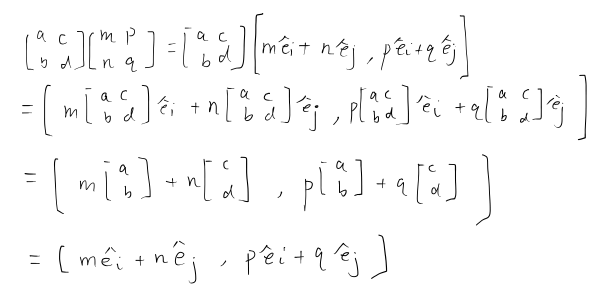 [a c b d][m p n q] = [a c b d][m ê_i + n ê_j , p ê_i + q ê_j]
= [ m [a c b d] ê_i + n [a c b d] ê_j , p [a c b d] ê_i + q [a c b d] ê_j ]
= [ m [a b] + n [c d] , p [a b] + q [c d] ]
= [ m ê_i + n ê_j , p ê_i + q ê_j ]